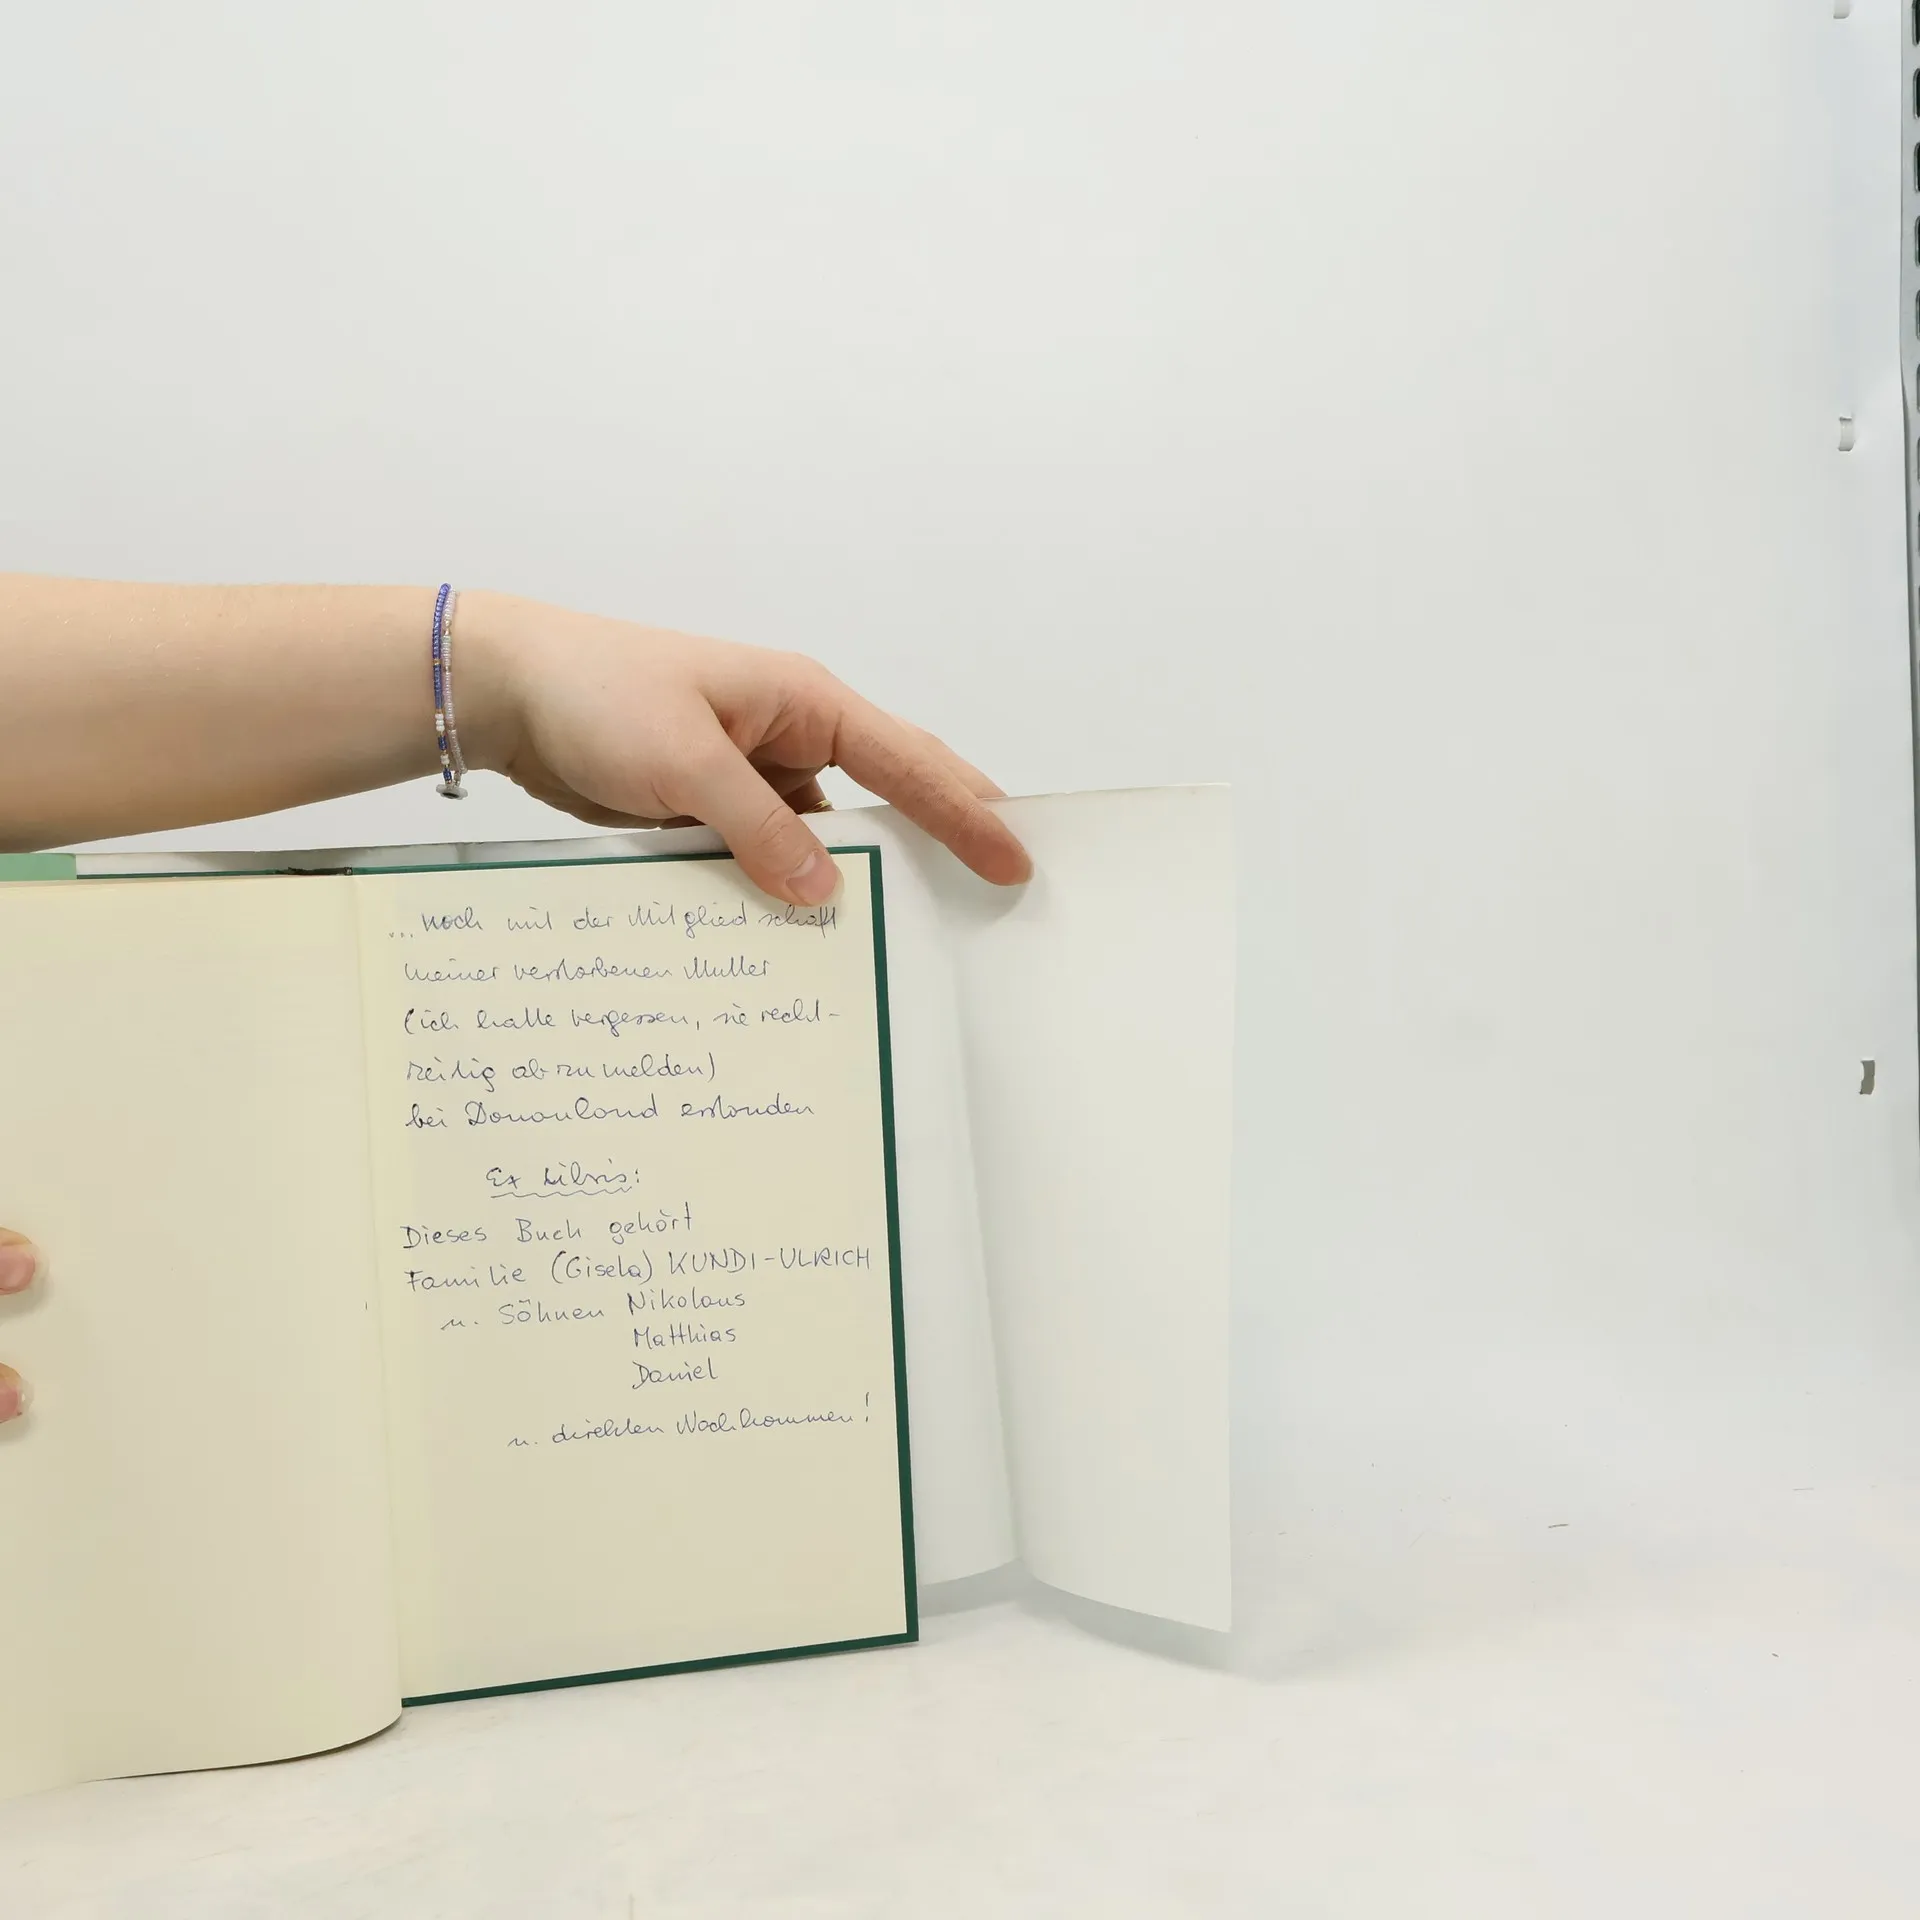 ... noch mit der Mitgliedschaft
meiner verstorbenen Mutter
(ich hatte vergessen, sie recht-
zeitig abzumelden)
bei Donauland erstanden
Ex Libris:
Dieses Buch gehört
Familie (Gisela) KUNDI-ULRICH
u. Söhnen Nikolaus
Matthias
Daniel
u. direkten Nachkommen!